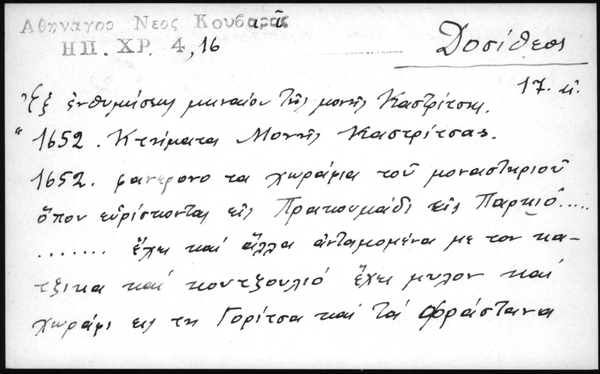 Αθηναγορ Νεος Κουβαρᾶς
ΗΠ. ΧΡ. 4, 16
Δοσίθεος
17. κ.
Ἐξ ἐνθυμίσεως μηναίου τῆς μονῆς Καστρίτσης.
"1652. Κτήματα Μονῆς Καστρίτσας.
1652. φανερονο τα χωράφια τοῦ μοναστηριοῦ
ὅπου εὑρίσκονται εἰς Πρατουμάδι εἰς
....... ἔχει καὶ ἄλλα ἀνταμομένα με τον κα-
τζικα καὶ κουτζουλιό ἔχει μυλον καὶ
χωράφι εις τη Γορίτσα καὶ τά Φράστανα